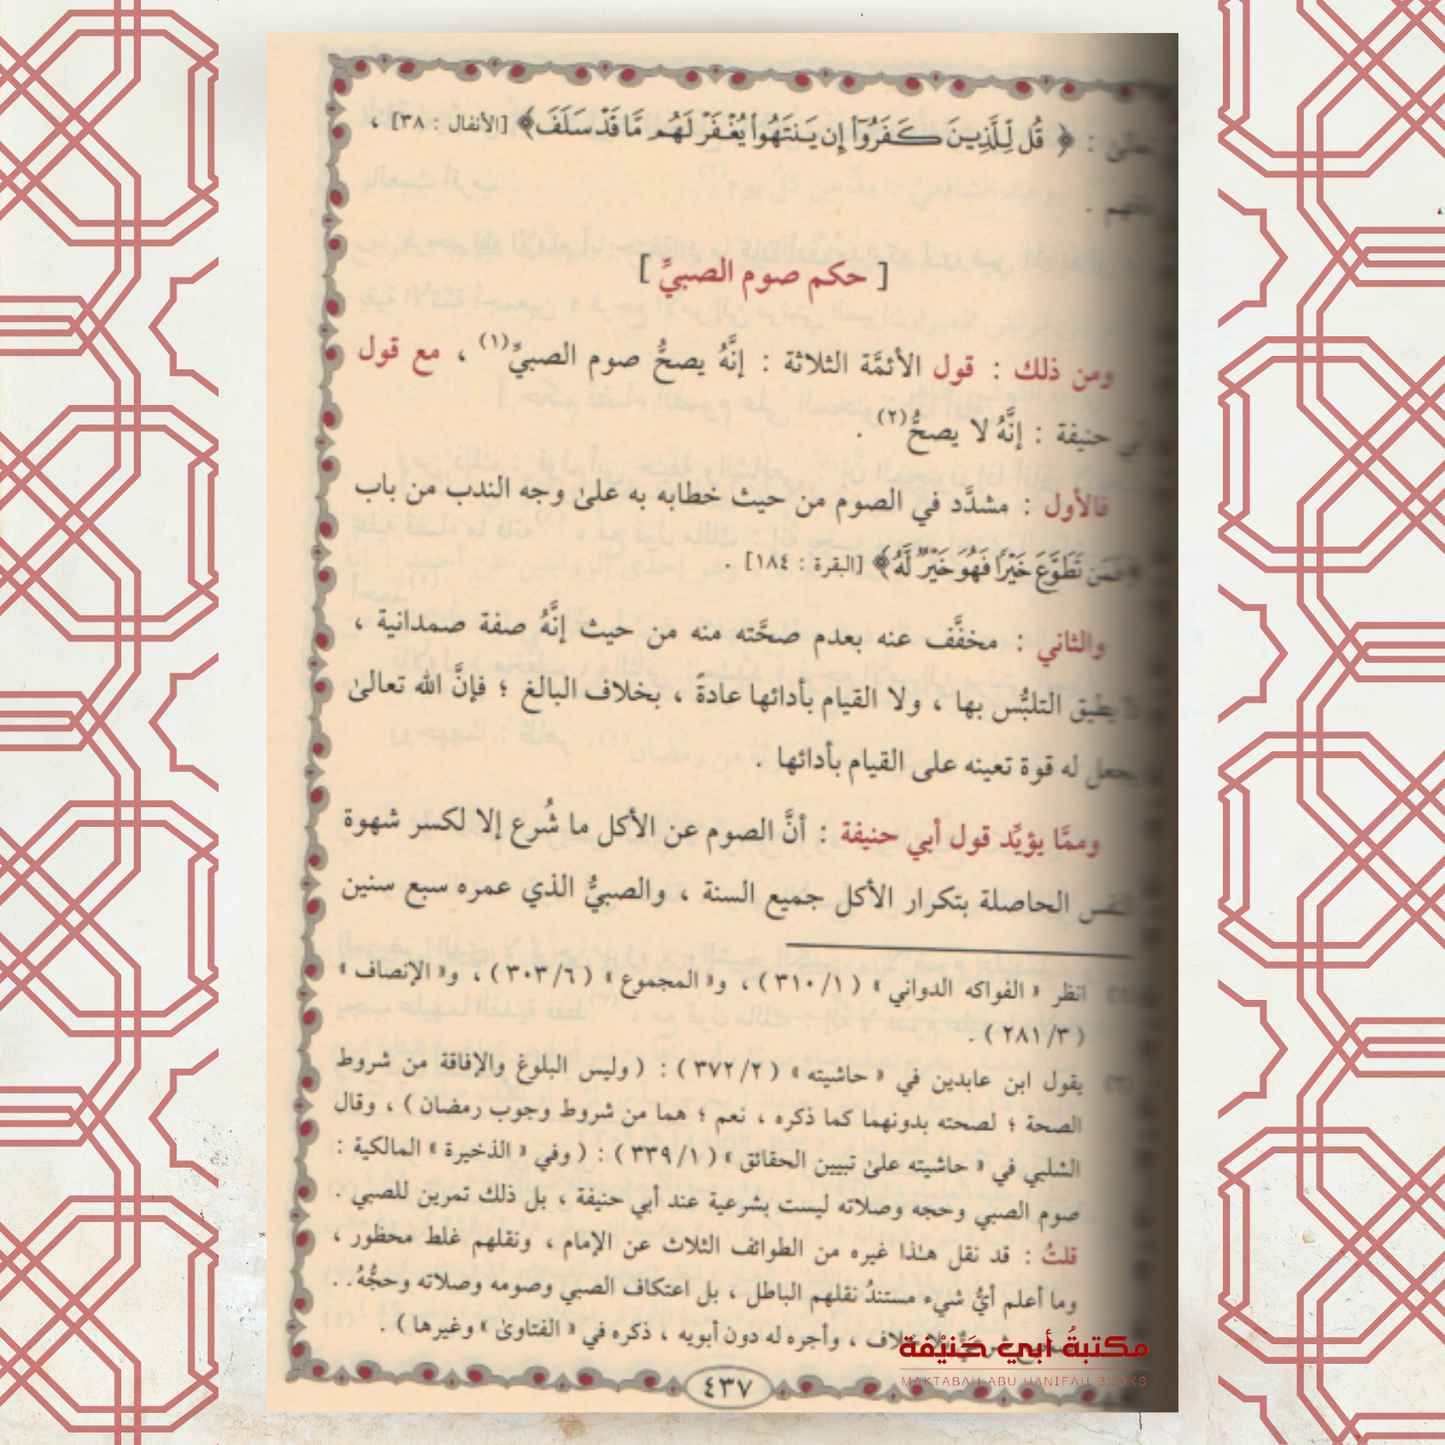 ﴿ قُل لِّلَّذِينَ كَفَرُوٓا۟ إِن يَنتَهُوا۟ يُغْفَرْ لَهُم مَّا قَدْ سَلَفَ﴾ [الأنفال : ٣٨] ،
[ حكم صوم الصبيِّ ]
ومن ذلك : قول الأئمَّة الثلاثة : إنَّهُ يصحُّ صوم الصبيِّ(١) ، مع قول
حنيفة : إنَّهُ لا يصحُّ(٢) .
فالأول : مشدَّد في الصوم من حيث خطابه به علىٰ وجه الندب من باب
﴿فَمَن تَطَوَّعَ خَيْرًا فَهُوَ خَيْرٌ لَّهُ﴾ [البقرة : ١٨٤] .
والثاني : مخفَّف عنه بعدم صحَّته منه من حيث إنَّهُ صفة صمدانية ،
يطيق التلبُّس بها ، ولا القيام بأدائها عادةً ، بخلاف البالغ ؛ فإنَّ الله تعالىٰ
له قوة تعينه على القيام بأدائها .
وممَّا يؤيِّد قول أبي حنيفة : أنَّ الصوم عن الأكل ما شُرع إلا لكسر شهوة
النفس الحاصلة بتكرار الأكل جميع السنة ، والصبيُّ الذي عمره سبع سنين
انظر « الفواكه الدواني » ( ٣١٠/١ ) ، و« المجموع » ( ٣٠٣/٦ ) ، و« الإنصاف »
( ٢٨١/٣ ) .
يقول ابن عابدين في « حاشيته » ( ٣٧٢/٢ ) : ( وليس البلوغ والإفاقة من شروط
الصحة ؛ لصحته بدونهما كما ذكره ، نعم ؛ هما من شروط وجوب رمضان ) ، وقال
الشلبي في « حاشيته علىٰ تبيين الحقائق » ( ٣٣٩/١ ) : ( وفي « الذخيرة » المالكية :
صوم الصبي وحجه وصلاته ليست بشرعية عند أبي حنيفة ، بل ذلك تمرين للصبي .
قلتُ : قد نقل هـٰذا غيره من الطوائف الثلاث عن الإمام ، ونقلهم غلط محظور ،
وما أعلم أيُّ شيء مستندُ نقلهم الباطل ، بل اعتكاف الصبي وصومه وصلاته وحجُّهُ . .
، وأجره له دون أبويه ، ذكره في « الفتاوىٰ » وغيرها ) .
مكتبةُ أبي حَنيْفة
MAKTABAH ABU HANIFAH BOOKS
٤٣٧